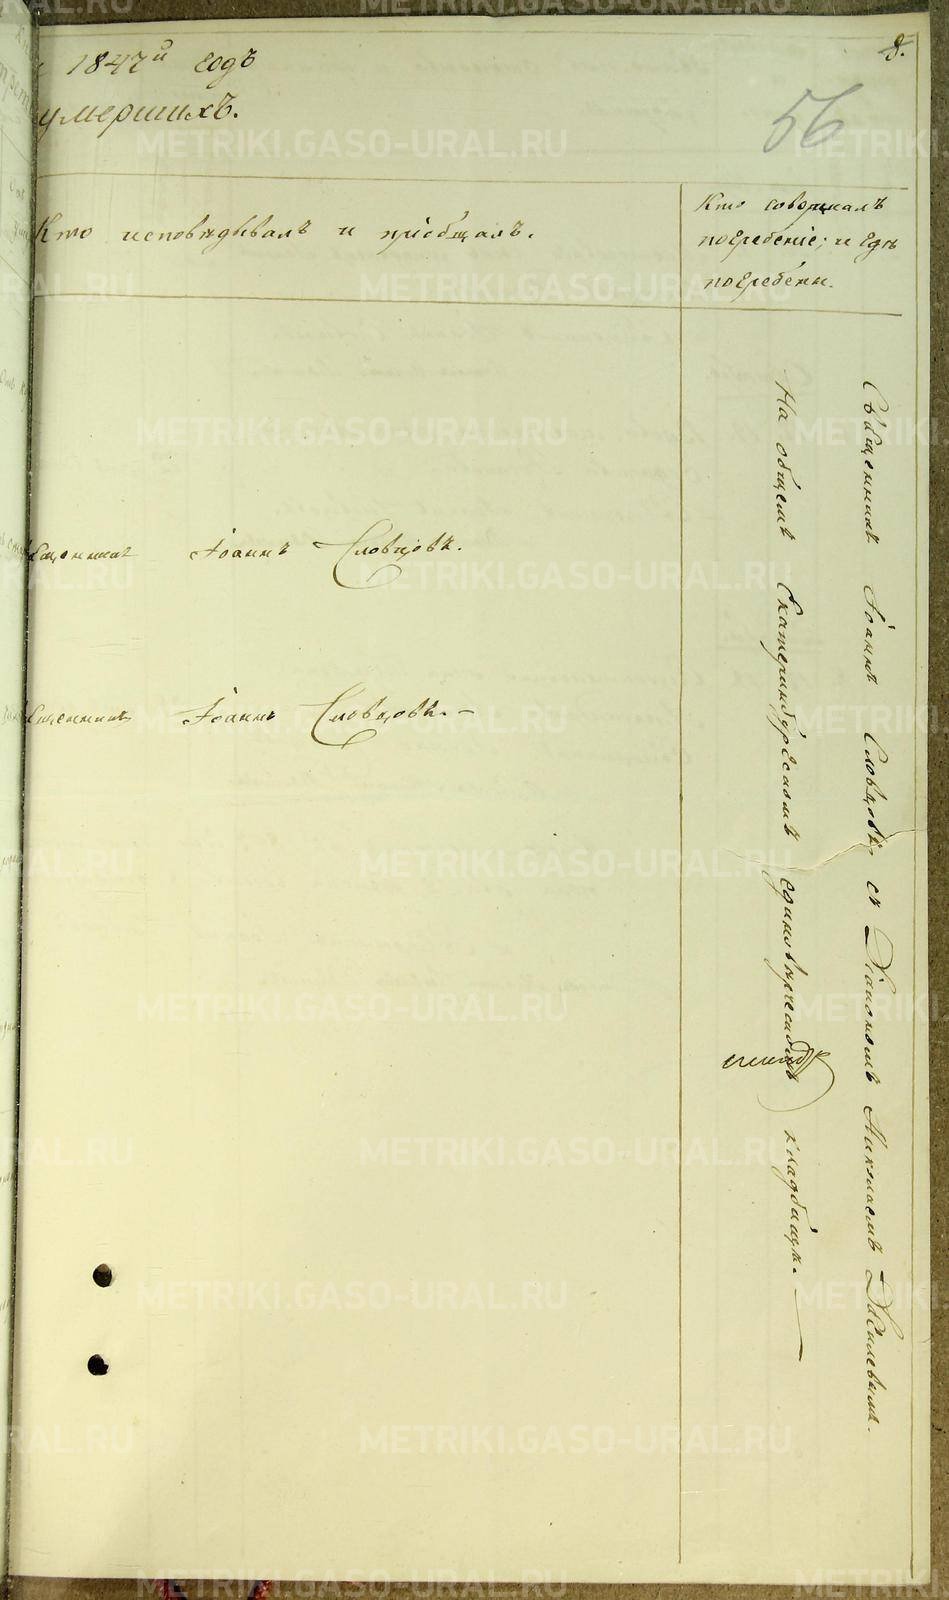 8.
1847й годъ
умершихъ.
56
Кто исповѣдывалъ и пріобщалъ.
Кто совершалъ
погребеніе; и гдѣ
погребены.
Священникъ Іоаннъ Словцовъ, съ Діакономъ Николаемъ
На общемъ Екатеринбургскомъ единовѣрческомъ кладбищѣ.
Іоаннъ Словцовъ.
Іоаннъ Словцовъ.
METRIKI.GASO-URAL.RU